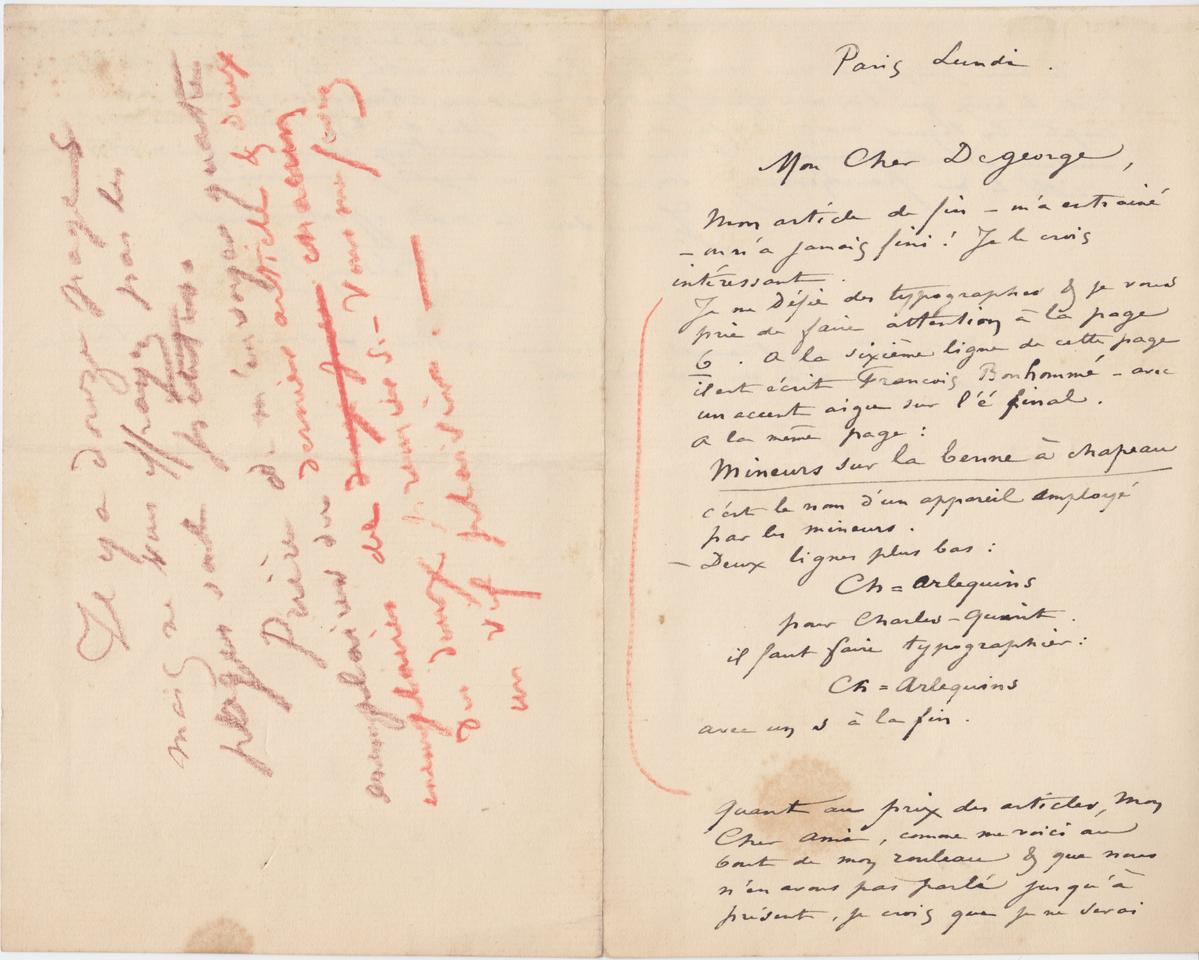 Paris Lundi.
Mon Cher Degeorge,
Mon article de fin – m'a entrainé
– on n'a jamais fini ! Je le crois
intéressant.
Je me Défie des typographes & je vous
prie de faire attention à la page
6. A la sixième ligne de cette page
il est écrit François Bonhommé – avec
un accent aigu sur l'é final.
A la même page :
Mineurs sur la benne à chapeau
c'est le nom d'un appareil employé
par les mineurs.
– Deux lignes plus bas :
Ch = Arlequins
pour Charles-Quint.
il faut faire typographier :
Ch = Arlequins
avec un s à la fin.
Quant au prix des articles, Mon
Cher ami, comme me voici au
bout de mon rouleau & que nous
n'en avons pas parlé jusqu'à
présent, je crois que je ne serai
Il y a douze pages
mais ne vous effrayez pas les
pages sont petites
Prière de m'envoyer quatre
exemplaires du dernier article & deux
exemplaires de chacun
des deux premiers – Vous me ferez
un vif plaisir. –